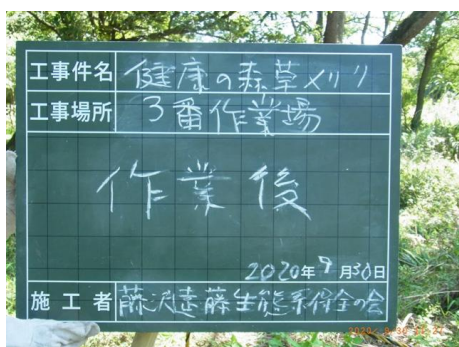 工事件名 健康の森草メリリ
工事場所 3番作業場
作業後
2020年9月30日
施工者 藤沢遠藤生態系保全の会